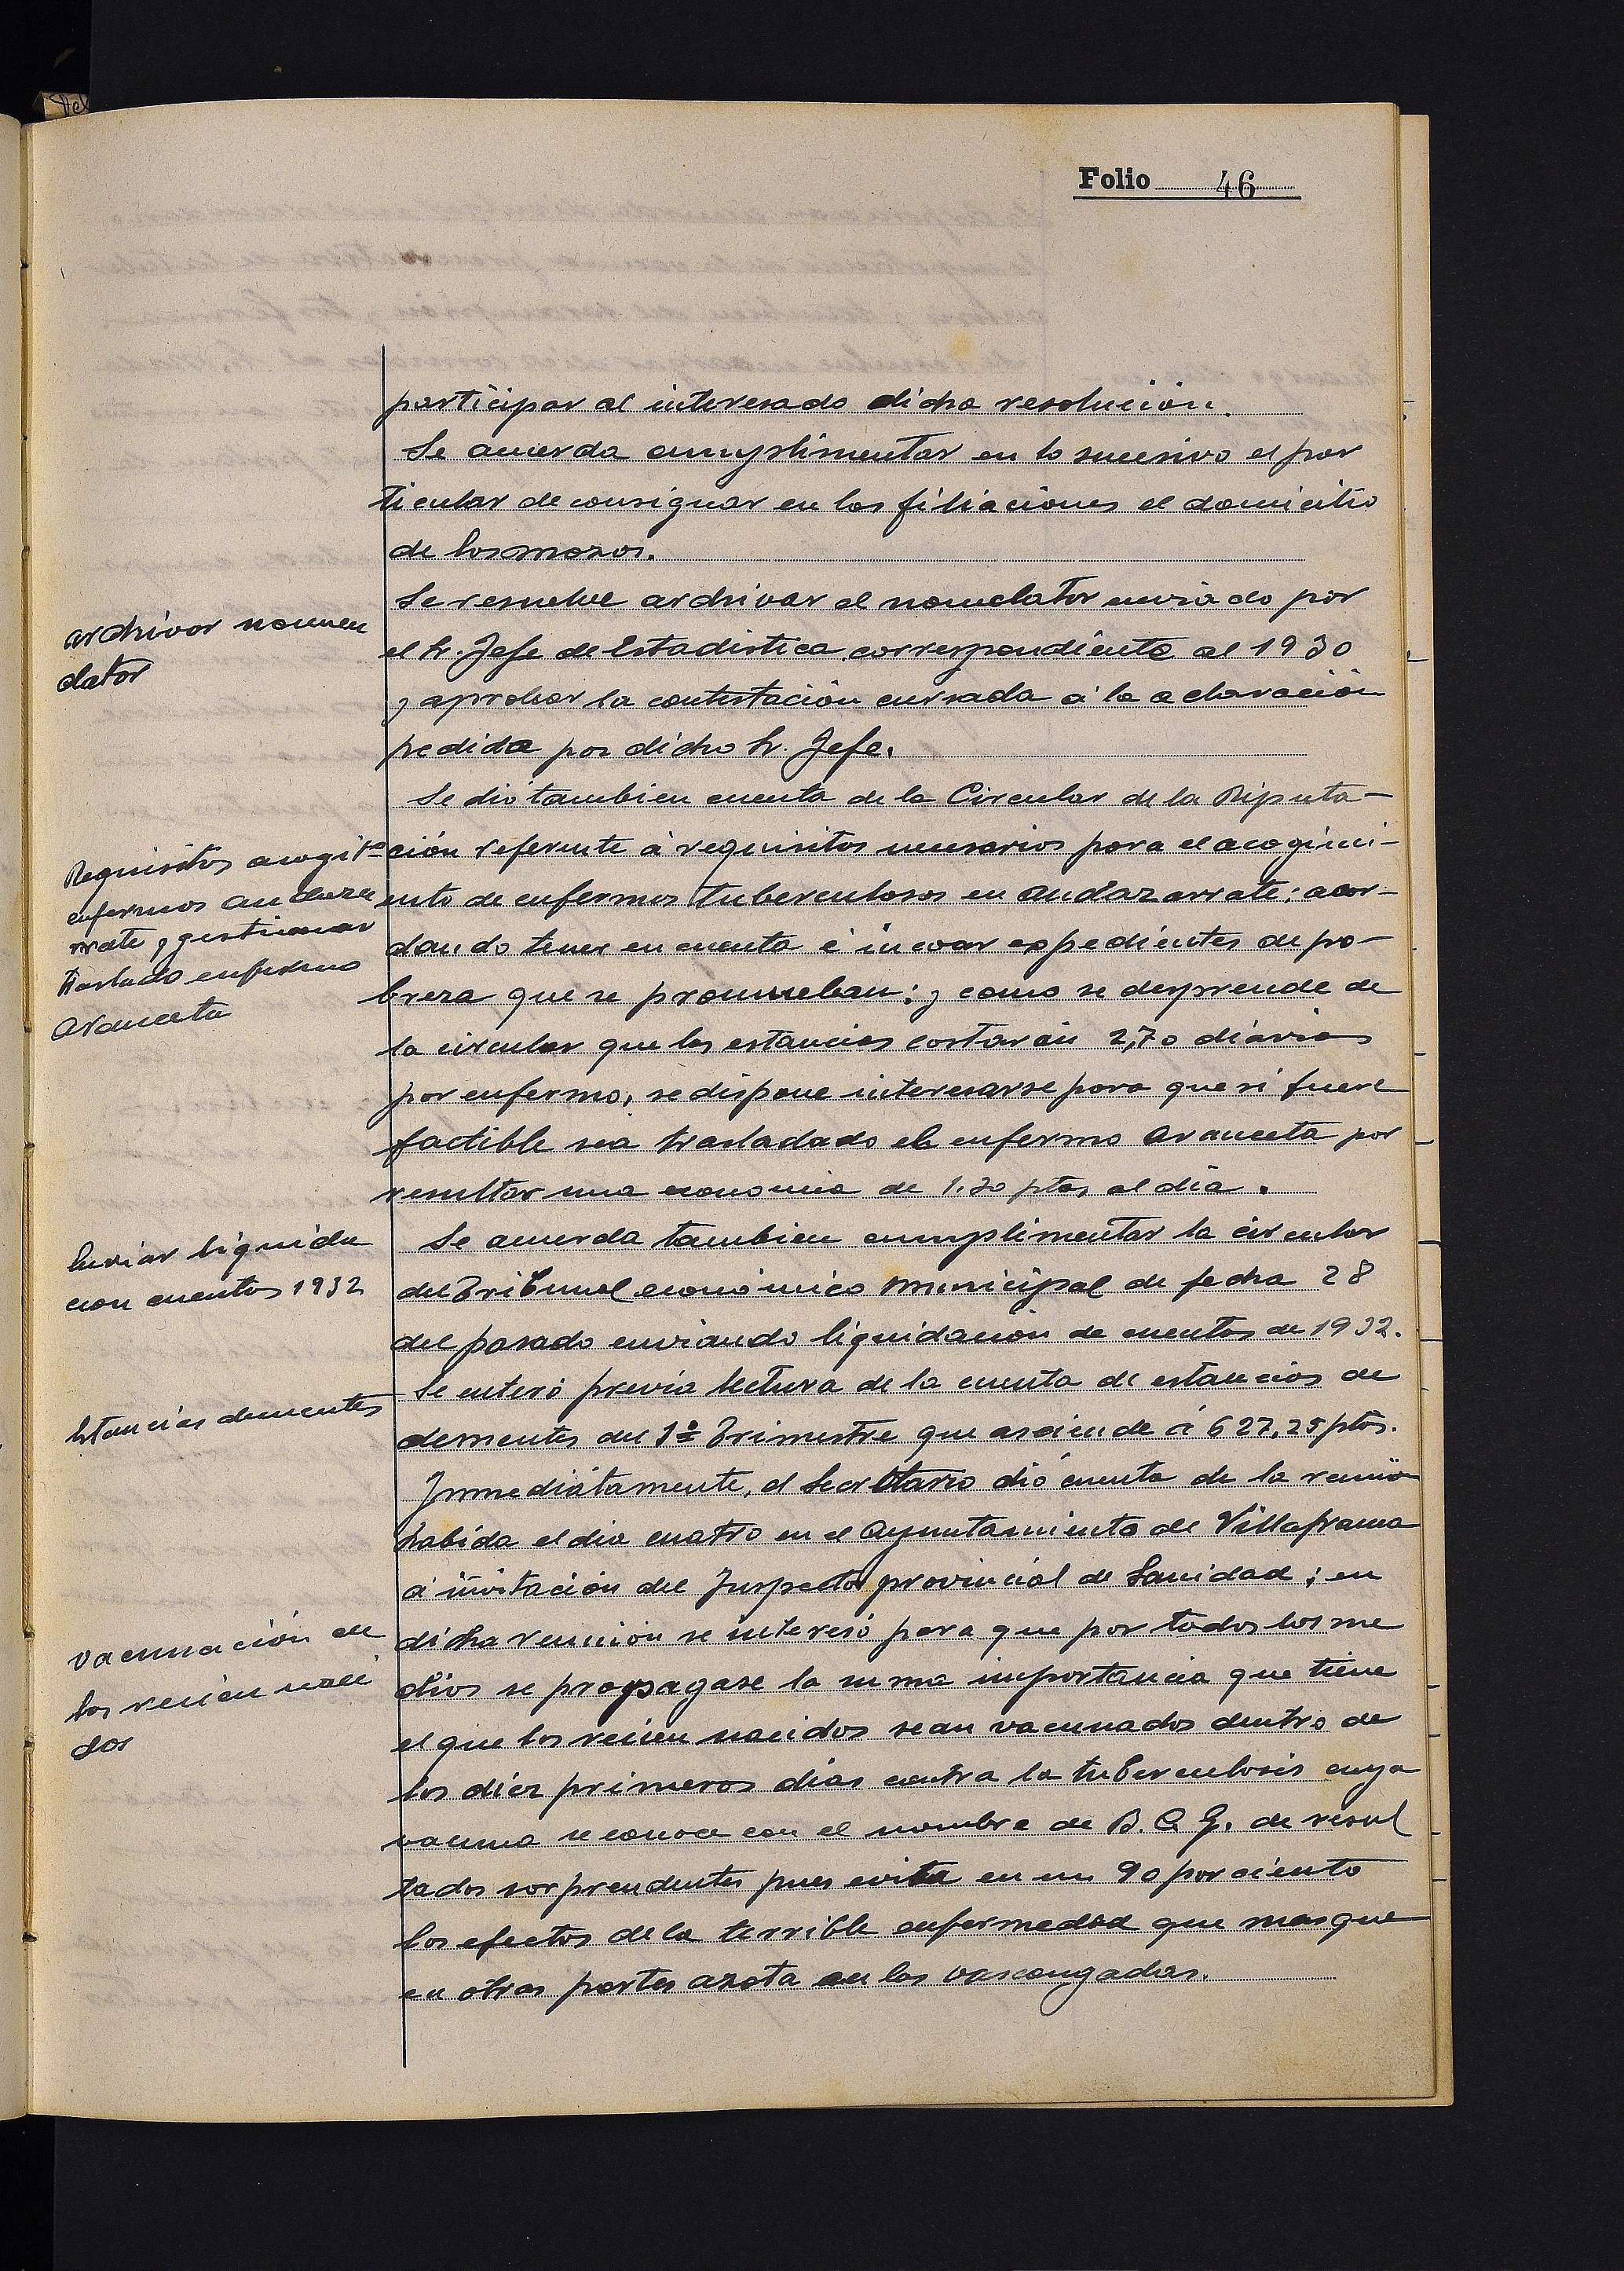 Folio 46
participar al interesado dicha resolución.
Se acuerda cumplimentar en lo sucesivo el par
ticular de consignar en las filiaciones el domicilio
de los mozos.
archivar nomen
clator
Se resuelve archivar el nomeclator enviado por
el Sr. Jefe de Estadistica correspondiente al 1930
y aprobar la contestación cursada á la aclaración
pedida por dicho Sr. Jefe.
Requisitos acogitº
enfermos Andaza
rrate y gestionar
traslado enfermo
Aranceta
Se dió tambien cuenta de la Circular de la Diputa-
ción referente á requisitos necesarios para el acogimi-
ento de enfermos tuberculosos en Andazarrate; acor-
dando tener en cuenta é incoar expedientes de po-
breza que se promueban; y como se desprende de
la circular que las estancias costarán 2,70 diarias
por enfermo, se dispone interesarse para que si fuere
factible sea trasladado el enfermo Aranceta por
resultar una economia de 1.30 ptas al dia.
Enviar liquida
cion cuentas 1932
Se acuerda tambien cumplimentar la circular
del Tribunal económico municipal de fecha 28
del pasado enviando liquidación de cuentas de 1932.
Estancias dementes
Se enteró previa lectura de la cuenta de estancias de
dementes del 1º Trimestre que asciende á 627,25 ptas.
Inmediatamente, el Secretario dió cuenta de la reunión
habida el dia cuatro en el Ayuntamiento de Villafranca
á invitación del Inspector provincial de Sanidad; en
vacunación de
los recien naci
dos
dicha reunión se interesó para que por todos los me
dios se propagase la suma importancia que tiene
el que los recien nacidos sean vacunados dentro de
los diez primeros dias contra la tuberculosis cuya
vacuna se conoce con el nombre de B. C. G. de resul
tados sorprendentes pues evita en un 90 por ciento
los efectos de la terrible enfermedad que mas que
en otras partes azota en las vascongadas.